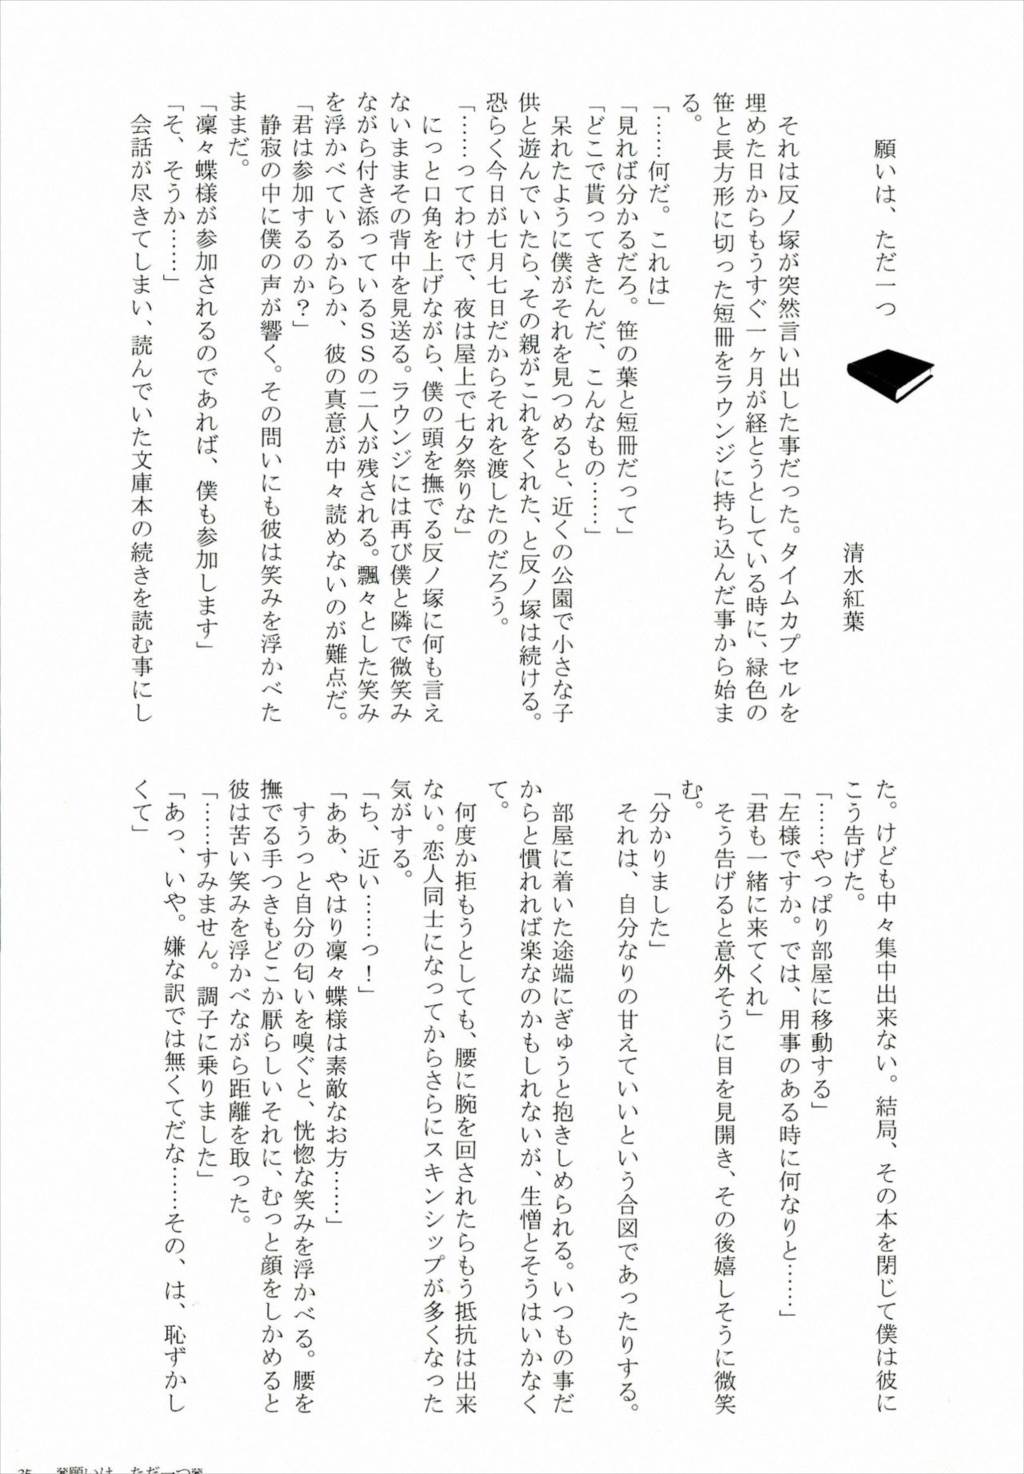 願いは、ただ一つ
清水紅葉
それは反ノ塚が突然言い出した事だった。タイムカプセルを
埋めた日からもうすぐ一ヶ月が経とうとしている時に、緑色の
笹と長方形に切った短冊をラウンジに持ち込んだ事から始ま
る。
「……何だ。これは」
「見れば分かるだろ。笹の葉と短冊だって」
「どこで貰ってきたんだ、こんなもの……」
呆れたように僕がそれを見つめると、近くの公園で小さな子
供と遊んでいたら、その親がこれをくれた、と反ノ塚は続ける。
恐らく今日が七月七日だからそれを渡したのだろう。
「……ってわけで、夜は屋上で七夕祭りな」
にっと口角を上げながら、僕の頭を撫でる反ノ塚に何も言え
ないままその背中を見送る。ラウンジには再び僕と隣で微笑み
ながら付き添っているＳＳの二人が残される。飄々とした笑み
を浮かべているからか、彼の真意が中々読めないのが難点だ。
「君は参加するのか？」
静寂の中に僕の声が響く。その問いにも彼は笑みを浮かべた
ままだ。
「凜々蝶様が参加されるのであれば、僕も参加します」
「そ、そうか……」
会話が尽きてしまい、読んでいた文庫本の続きを読む事にし
た。けども中々集中出来ない。結局、その本を閉じて僕は彼に
こう告げた。
「……やっぱり部屋に移動する」
「左様ですか。では、用事のある時に何なりと……」
「君も一緒に来てくれ」
そう告げると意外そうに目を見開き、その後嬉しそうに微笑
む。
「分かりました」
それは、自分なりの甘えていいという合図であったりする。
部屋に着いた途端にぎゅうと抱きしめられる。いつもの事だ
からと慣れれば楽なのかもしれないが、生憎とそうはいかなく
て。
何度か拒もうとしても、腰に腕を回されたらもう抵抗は出来
ない。恋人同士になってからさらにスキンシップが多くなった
気がする。
「ち、近い……っ！」
「ああ、やはり凜々蝶様は素敵なお方……」
すうっと自分の匂いを嗅ぐと、恍惚な笑みを浮かべる。腰を
撫でる手つきもどこか厭らしいそれに、むっと顔をしかめると
彼は苦い笑みを浮かべながら距離を取った。
「……すみません。調子に乗りました」
「あっ、いや。嫌な訳では無くてだな……その、は、恥ずかし
くて」
願いは、ただ一つ